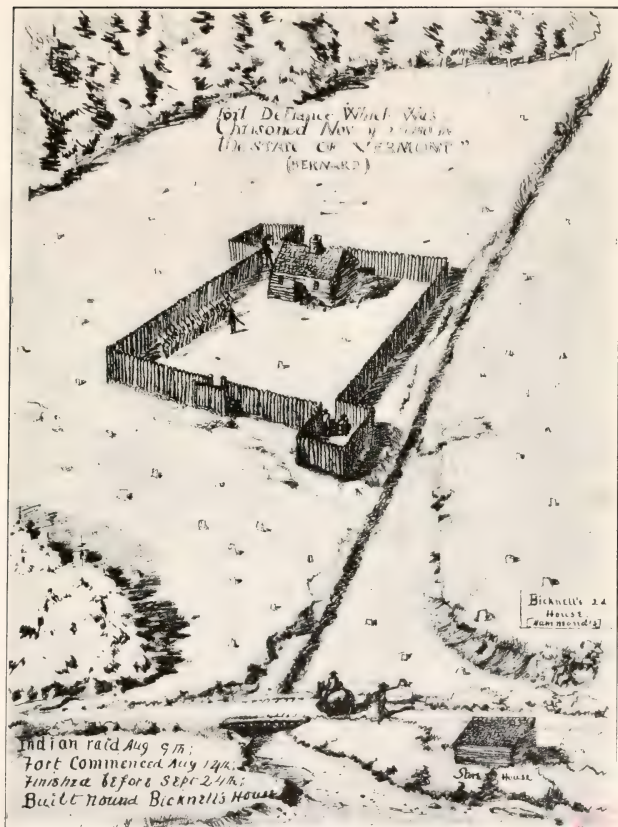 Fort Defiance Which Was
Chrisoned Nov
the STATE OF VERMONT"
(BERNARD)
Bicknell's 2d
House
[Hammond's]
Indian raid Aug 9th;
Fort Commenced Aug 14th;
Finished before Sept 24th;
Built round Bicknell's House
Store House